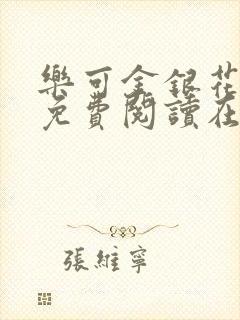 樂可金銀花
免費閱讀在
張維寧